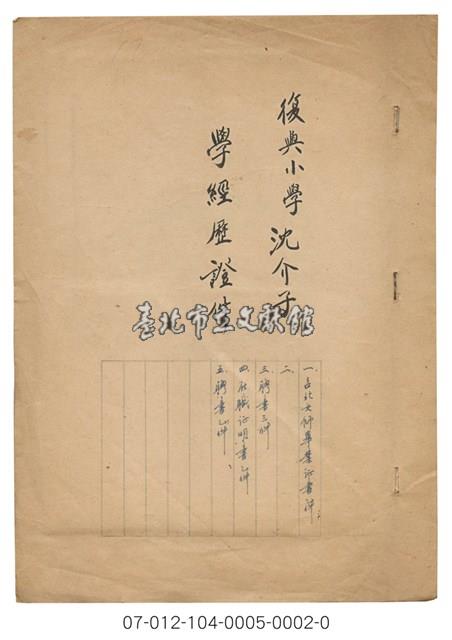 復興小學 沈介子
學經歷證件
臺北市立文獻館
一、台北女師畢業证書 件
二、
三、聘書三件
四、在職証明書乙件
五、聘書乙件
07-012-104-0005-0002-0